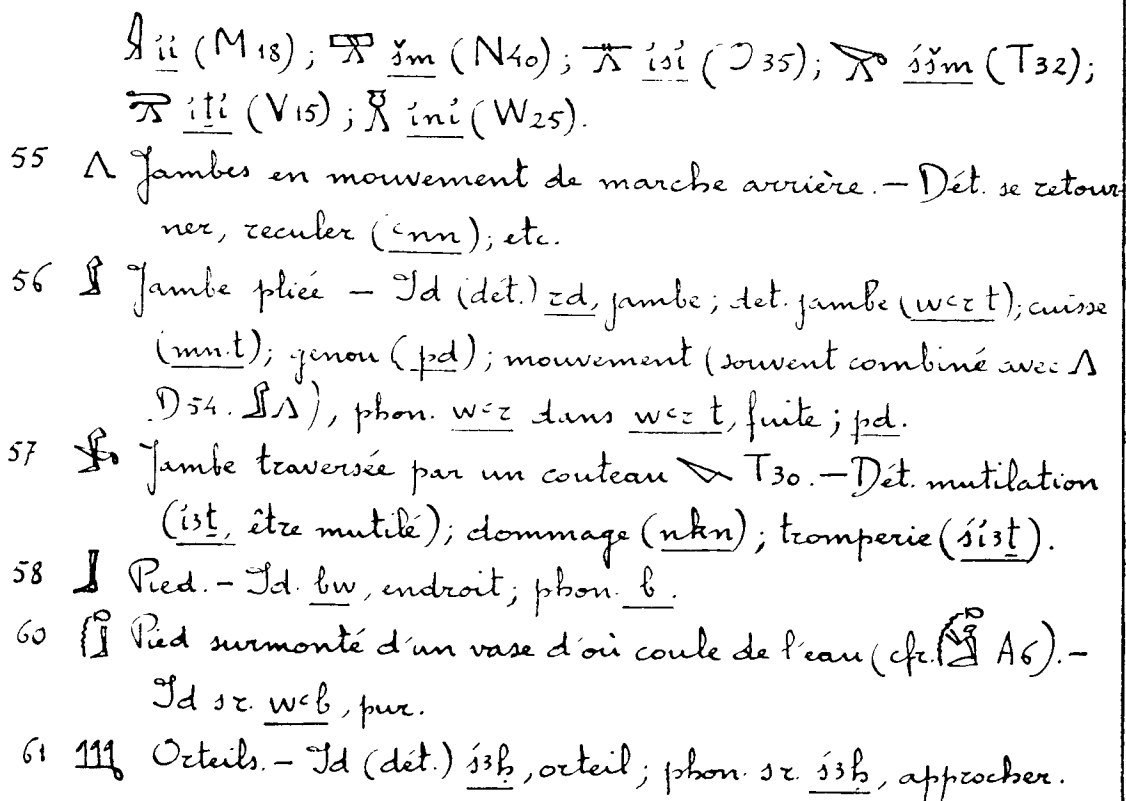 𓇍 íí (M18); 𓈷 šm (N40); 𓊶 ísí (O35); 𓌬 sšm (T32);
𓎁 íṯí (V15); 𓏎 íní (W25).
55 𓂽 Jambes en mouvement de marche arrière. — Dét. se retour-
ner, reculer (ꜥnn); etc.
56 𓂾 Jambe pliée — Id (dét.) rd, jambe; det. jambe (wꜥr t); cuisse
(mn.t); genou (pd); mouvement (souvent combiné avec 𓂻
D54. 𓂾𓂻), phon. wꜥr dans wꜥr t, fuite; pd.
57 𓂿 Jambe traversée par un couteau 𓌪 T30. — Dét. mutilation
(íꜣṯ, être mutilé); dommage (nkn); tromperie (śíꜣṯ).
58 𓃀 Pied. — Id. bw, endroit; phon. b.
60 𓃂 Pied surmonté d'un vase d'où coule de l'eau (cfr. 𓀆 A6). —
Id sr. wꜥb, pur.
61 𓃃 Orteils. — Id (dét.) śꜣḥ, orteil; phon. sr. śꜣḥ, approcher.